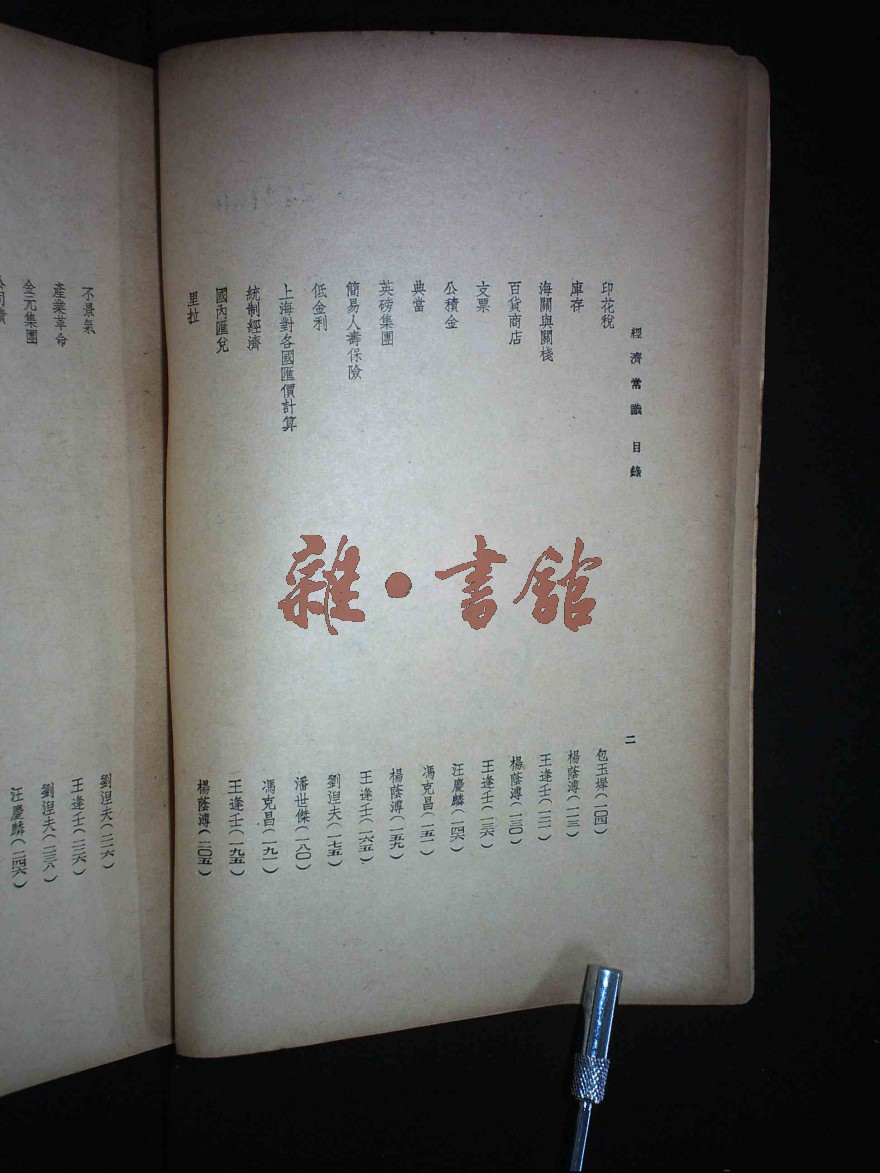 經濟常識 目錄
二
印花稅 包玉墀(一〇四)
庫存 楊蔭溥(一一三)
海關與關棧 王逢壬(一二一)
百貨商店 楊蔭溥(一三〇)
支票 王逢壬(一三六)
公積金 汪慶麟(一四六)
典當 馮克昌(一五一)
英磅集團 楊蔭溥(一五九)
簡易人壽保險 王逢壬(一六五)
低金利 劉湼夫(一七五)
上海對各國匯價計算 潘世傑(一八〇)
統制經濟 馮克昌(一九一)
國內匯兌 王逢壬(一九五)
里拉 楊蔭溥(二〇五)
不景氣 劉湼夫(二二六)
產業革命 王逢壬(二三六)
金元集團 劉湼夫(二三八)
公司債 汪慶麟(二四六)
雜·書館